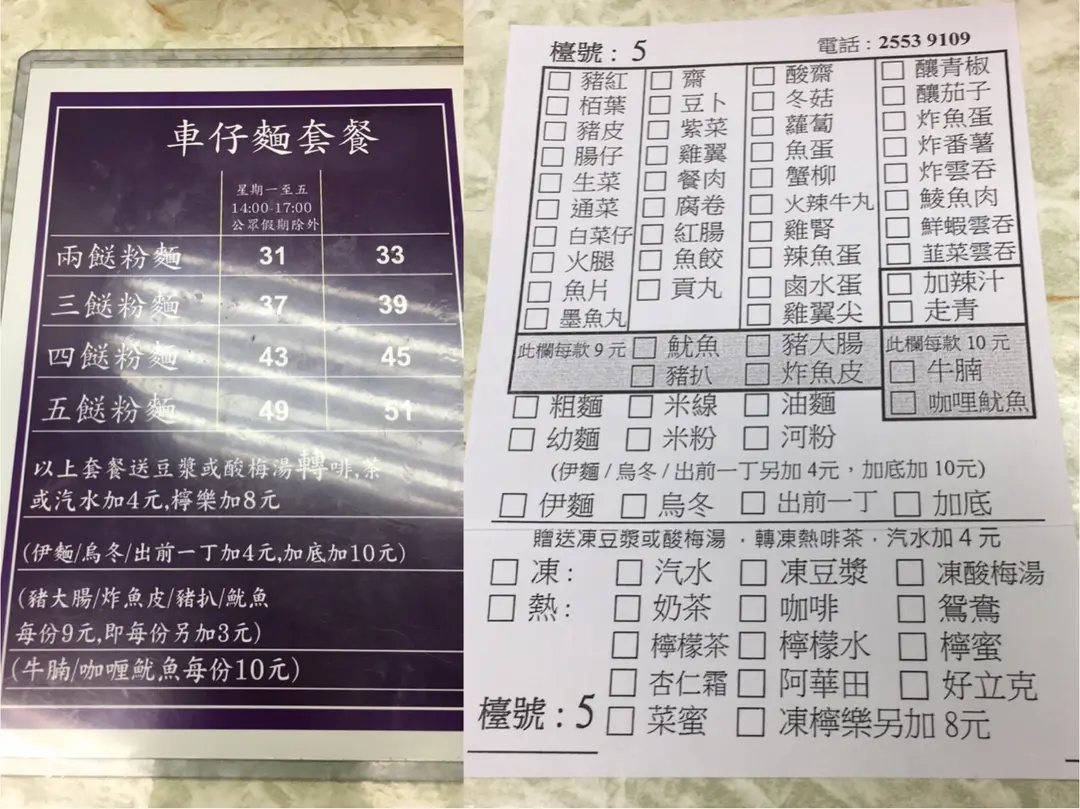 車仔麵套餐
星期一至五
14:00-17:00
公眾假期除外
兩餸粉麵 31 33
三餸粉麵 37 39
四餸粉麵 43 45
五餸粉麵 49 51
以上套餐送豆漿或酸梅湯轉啡,茶
或汽水加4元,檸樂加8元
(伊麵/烏冬/出前一丁加4元,加底加10元)
(豬大腸/炸魚皮/豬扒/魷魚
每份9元,即每份另加3元)
(牛腩/咖喱魷魚每份10元)
檯號:5 電話:2553 9109
□ 豬紅 □ 齋 □ 酸齋 □ 釀青椒
□ 栢葉 □ 豆卜 □ 冬菇 □ 釀茄子
□ 豬皮 □ 紫菜 □ 蘿蔔 □ 炸魚蛋
□ 腸仔 □ 雞翼 □ 魚蛋 □ 炸番薯
□ 生菜 □ 餐肉 □ 蟹柳 □ 炸雲吞
□ 通菜 □ 腐卷 □ 火辣牛丸 □ 鯪魚肉
□ 白菜仔 □ 紅腸 □ 雞腎 □ 鮮蝦雲吞
□ 火腿 □ 魚餃 □ 辣魚蛋 □ 韮菜雲吞
□ 魚片 □ 貢丸 □ 鹵水蛋 □ 加辣汁
□ 墨魚丸 □ 雞翼尖 □ 走青
此欄每款9元 □ 魷魚 □ 豬大腸 此欄每款10元
□ 豬扒 □ 炸魚皮 □ 牛腩
□ 粗麵 □ 米線 □ 油麵 □ 咖哩魷魚
□ 幼麵 □ 米粉 □ 河粉
(伊麵/烏冬/出前一丁另加4元,加底加10元)
□ 伊麵 □ 烏冬 □ 出前一丁 □ 加底
贈送凍豆漿或酸梅湯,轉凍熱啡茶,汽水加4元
□ 凍: □ 汽水 □ 凍豆漿 □ 凍酸梅湯
□ 熱: □ 奶茶 □ 咖啡 □ 鴛鴦
□ 檸檬茶 □ 檸檬水 □ 檸蜜
□ 杏仁霜 □ 阿華田 □ 好立克
檯號:5 □ 菜蜜 □ 凍檸樂另加8元